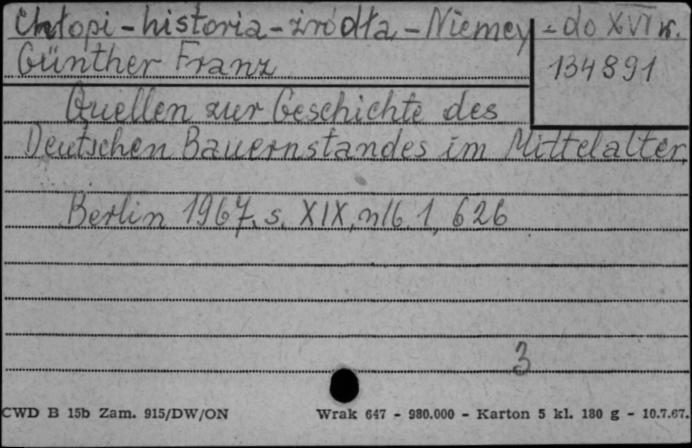 Chłopi - historia - źródła - Niemcy - do XVI w.
Günther Franz
134891
Quellen zur Geschichte des
Deutschen Bauernstandes im Mittelalter.
Berlin 1967, s. XIX, nlb. 1, 626
3
CWD B 15b Zam. 915/DW/ON Wrak 647 - 980.000 - Karton 5 kl. 180 g - 10.7.67.